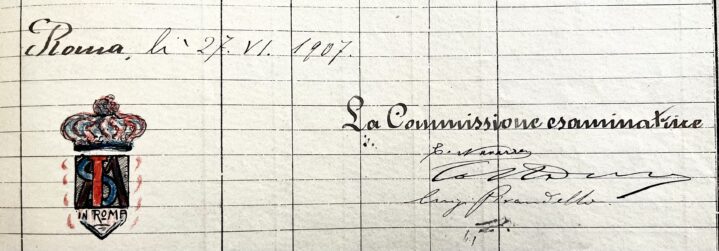 Roma, li 27. VI. 1907.
La Commissione esaminatrice
Luigi Pirandello
IN ROMA